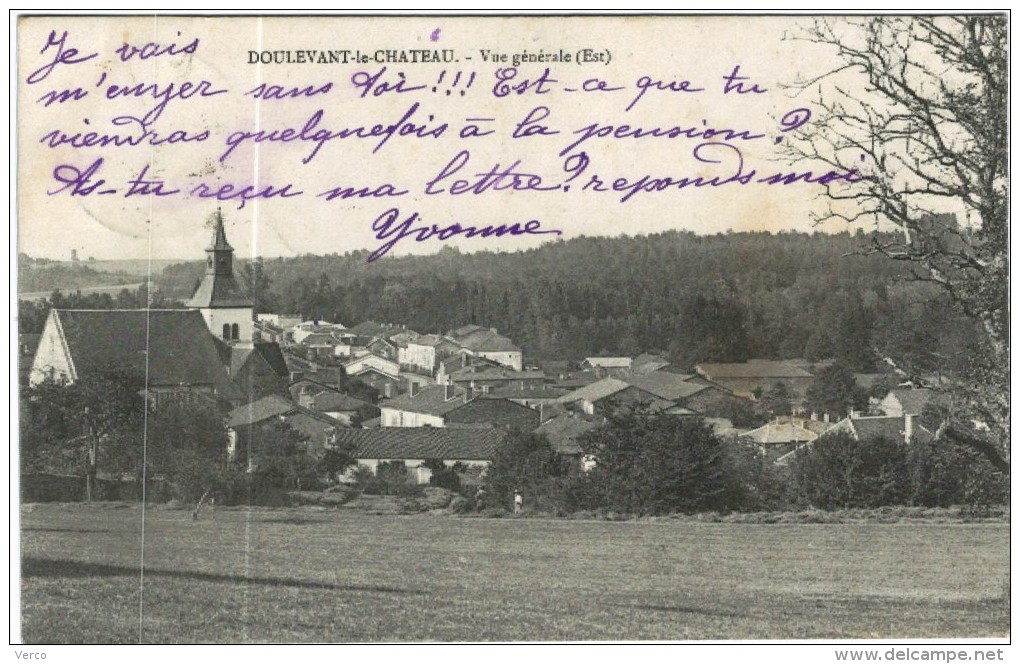 DOULEVANT-le-CHATEAU. - Vue générale (Est)
Je vais
m'enyer sans toi!!! Est-ce que tu
viendras quelquefois à la pension?
As-tu reçu ma lettre? reponds moi
Yvonne
Verco
www.delcampe.net